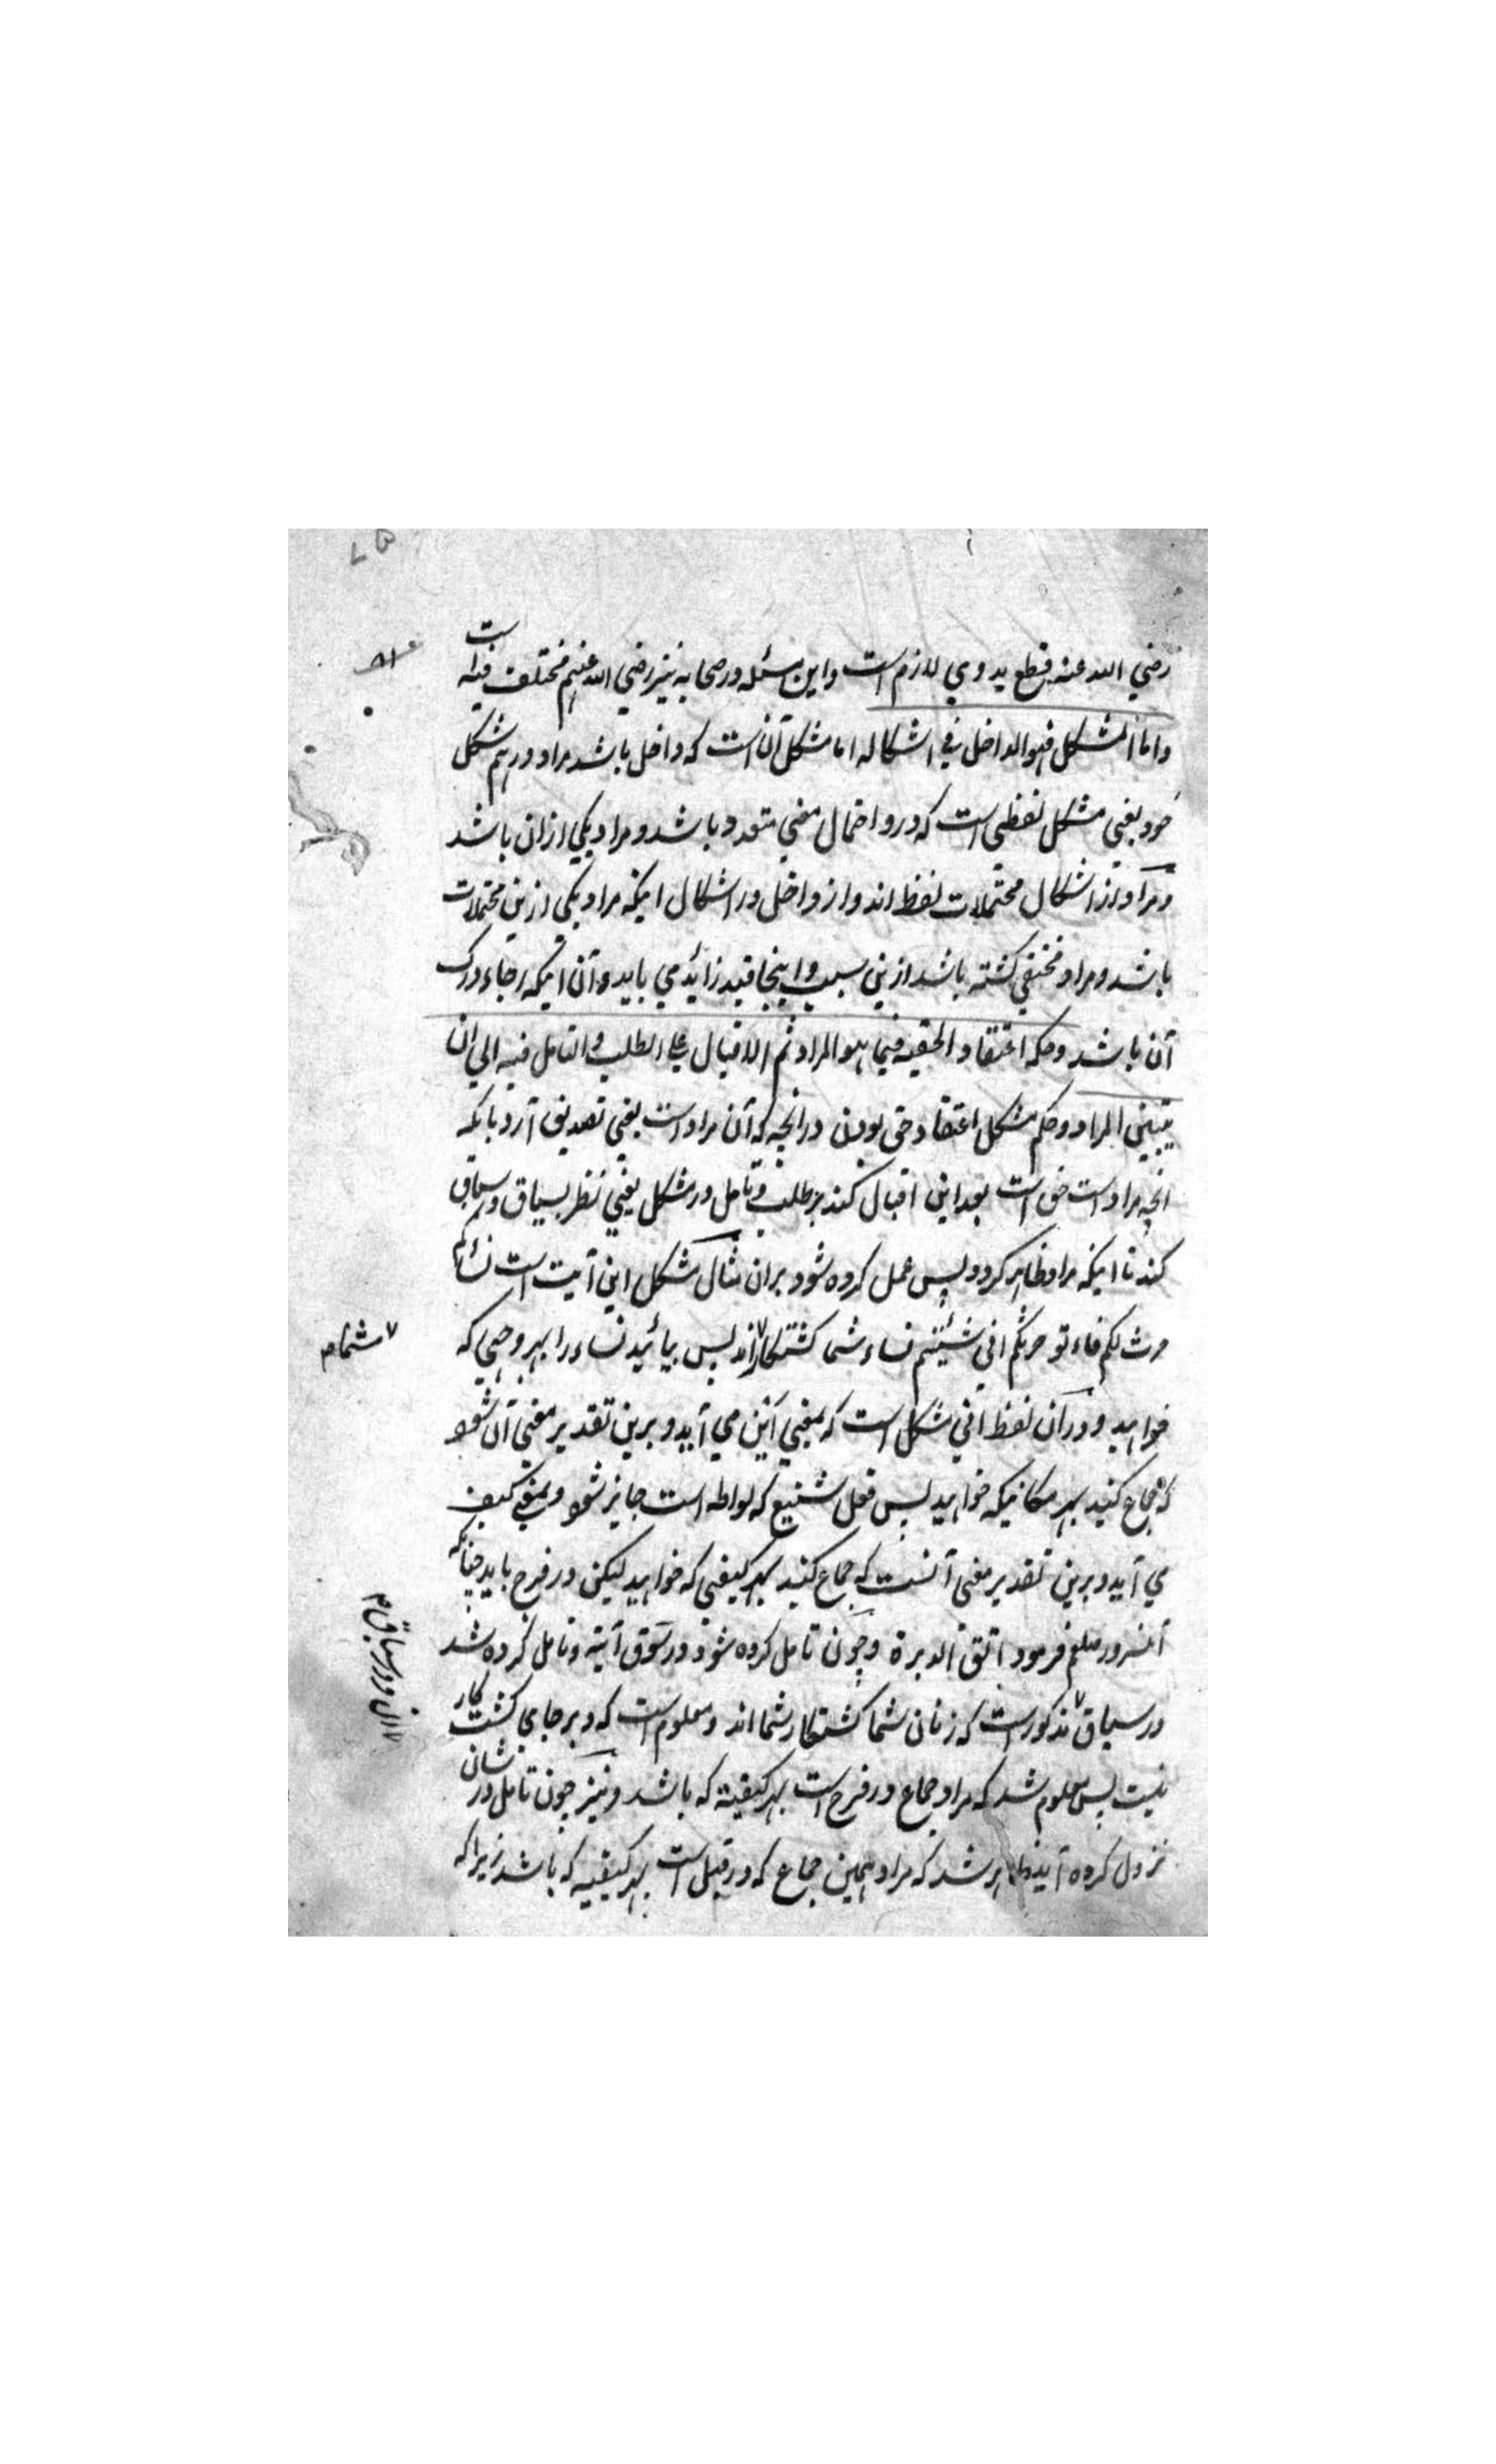 رضي الله عنه قطع يد وي لازم است واين مسئله در صحابه نيز رضي الله عنهم مختلف فيه است
واما المشكل فهو الداخل في اشكاله اما مشكل آن است كه داخل باشد مراد در هم شكل
خود يعني مشكل لفظي است كه درو احتمال معني متعدد باشد و مراد يكي ازان باشد
و مراد از اشكال محتملات لفظ اند و از داخل در اشكال اينكه مراد يكي ازين محتملات
باشد و مراد مختفي كشته باشد ازين سبب و اينجا قيد زائد مي بايد و آن اينكه رجاء درك
آن باشد و حكمه اعتقاد الحقيه فيما هو المراد ثم الاقبال علي الطلب و التامل فيه الي ان
يتبين المراد و حكم مشكل اعتقاد حق بودن در انچه كه آن مراد است يعني تصديق آرد بانكه
انچه مراد است حق است بعد اين اقبال كند بر طلب و تامل در مشكل يعني نظر بسياق و سباق
كند تا اينكه مراد ظاهر كردد پس عمل كرده شود بران مثال مشكل اين آيت است نسائكم
حرث لكم فاءتو حرثكم اني شئتم نساء شما كشتكار اند پس بيائيد نساء را بهر وجهي كه
خواهيد و در آن لفظ اني مشكل است كه بمعني اين مي آيد و برين تقدير معني آن شود
كه جماع كنيد بهر مكانيكه خواهيد پس فعل شنيع كه لواطه است جايز شود و بمعني كيف
مي آيد و برين تقدير معني آنست كه جماع كنيد بهر كيفي كه خواهيد ليكن در فرج بايد چنانكه
آنسرور صلعم فرمود اتق الدبرة و چون تامل كرده شود در سوق آيته و تامل كرده شد
در سياق مذكور است كه زنان شما كشتكار شما اند و معلوم است كه دبر جاي كشت كار
نيست پس معلوم شد كه مراد جماع در فرج است بهر كيفيته كه باشد و نيز چون تامل در شان
نزول كرده آيد ظاهر شد كه مراد همين جماع كه در قبل است بهر كيفيه كه باشد زيرا كه
شما م
ان در سباق م